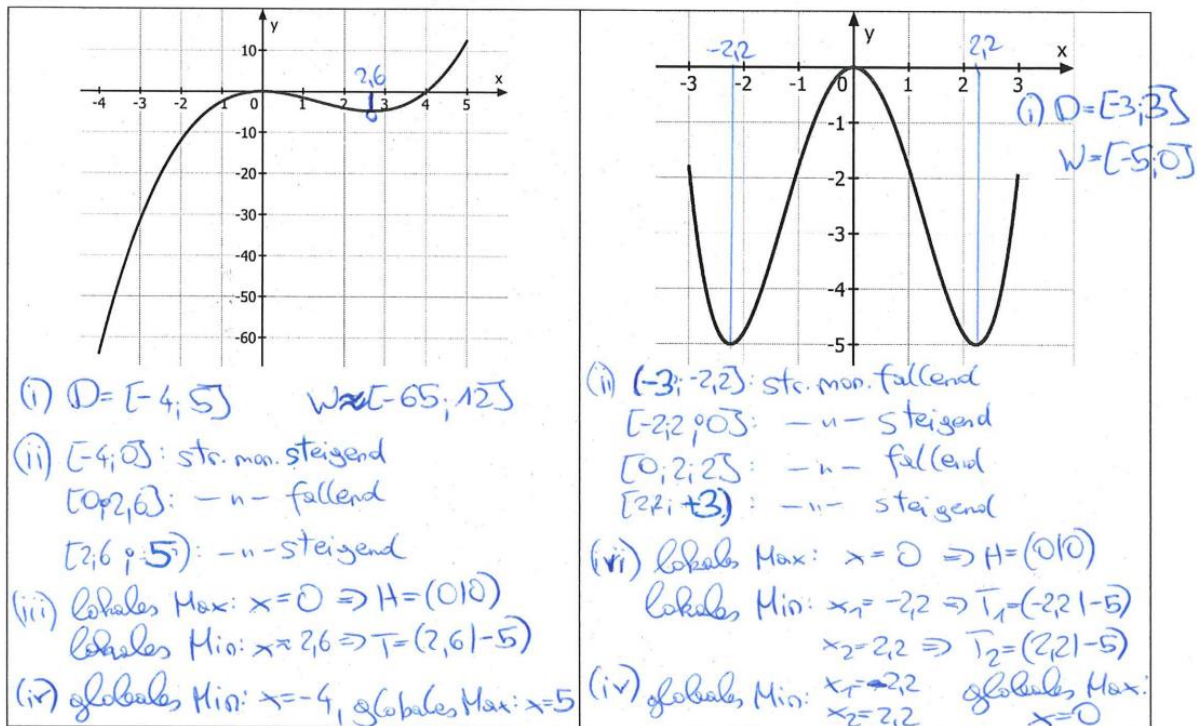 y
10
2,6
x
-4 -3 -2 -1 0 1 2 3 4 5
-10
-20
-30
-40
-50
-60
(i) D=[-4; 5] W≈[-65; 12]
(ii) [-4;0]: str. mon. steigend
[0;2,6]: -"- fallend
[2,6 ; 5): -"- steigend
(iii) lokales Max: x=0 ⇒ H=(0|0)
lokales Min: x≈2,6 ⇒ T=(2,6|-5)
(iv) globales Min: x=-4, globales Max: x=5
y
-2,2 2,2 x
-3 -2 -1 0 1 2 3
(i) D=[-3;3]
-1
W=[-5;0]
-2
-3
-4
-5
(ii) (-3; -2,2]: str. mon. fallend
[-2,2;0]: -"- steigend
[0; 2,2]: -"- fallend
[2,2; +3): -"- steigend
(iii) lokales Max: x=0 ⇒ H=(0|0)
lokales Min: x₁=-2,2 ⇒ T₁=(-2,2|-5)
x₂=2,2 ⇒ T₂=(2,2|-5)
(iv) globales Min: x₁=-2,2 globales Max:
x₂=2,2 x=0